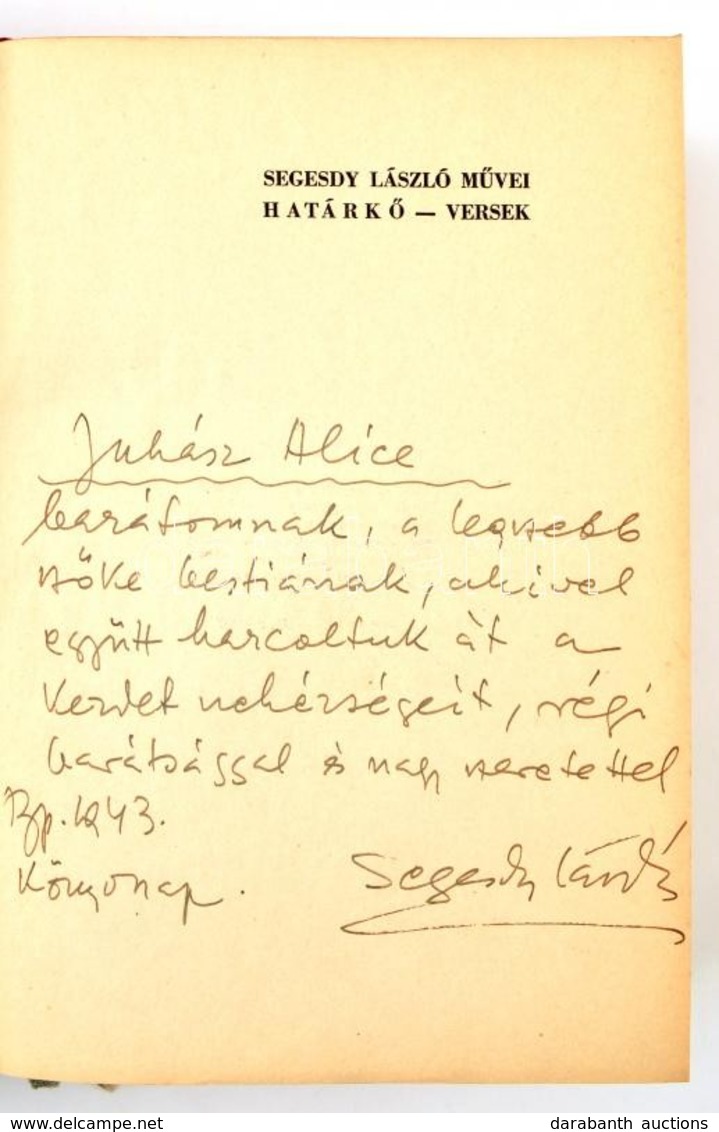 SEGESDY LÁSZLÓ MŰVEI
HATÁRKŐ — VERSEK
Juhász Alice
barátomnak, a legszebb
szőke bestiának, akivel
együtt harcoltuk át a
kezdet nehézségeit, régi
barátsággal és nagy szeretettel
Bp. 1943.
Könyvnap.
Segesdy László
darabanth
www.delcampe.net
darabanth auctions